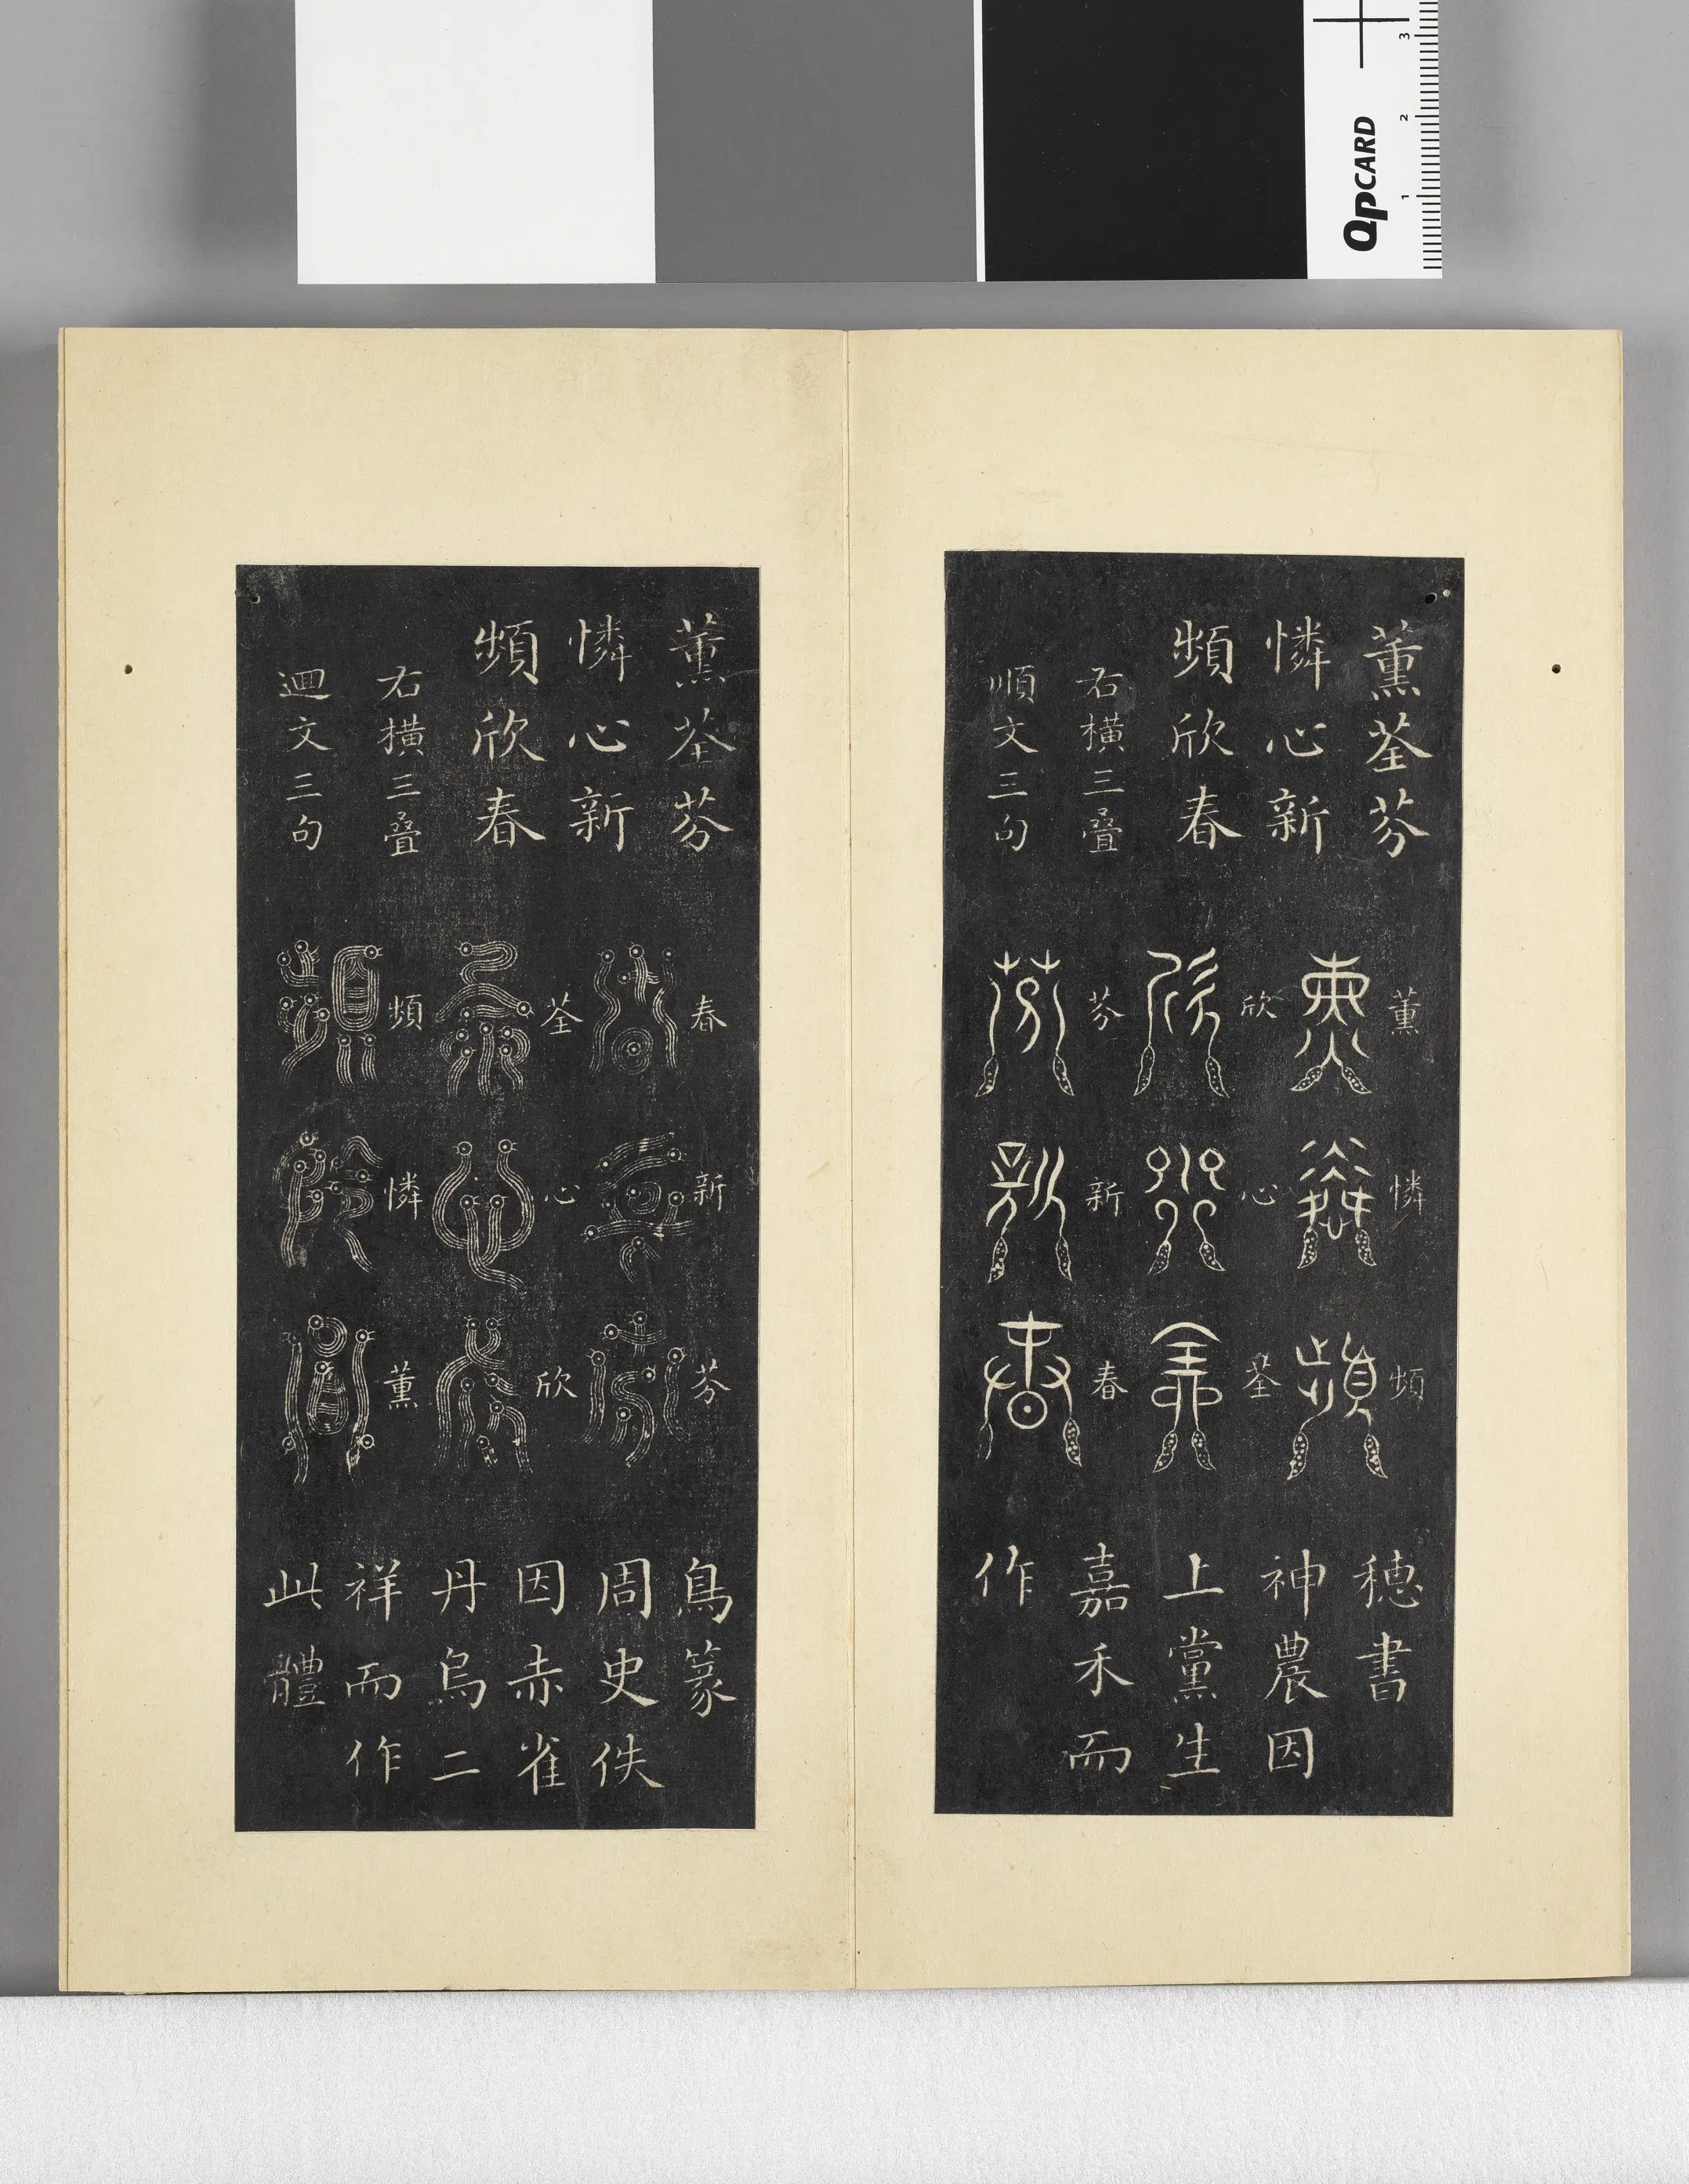 QPCARD
1
2
3
薰荃芬
憐心新
頻欣春
右橫三叠
順文三句
薰
憐
頻
欣
心
荃
芬
新
春
穗書
神農因
上黨生
嘉禾而
作
薰荃芬
憐心新
頻欣春
右橫三叠
迴文三句
春
新
芬
荃
心
欣
頻
憐
薰
鳥篆
周史佚
因赤雀
丹烏二
祥而作
此體